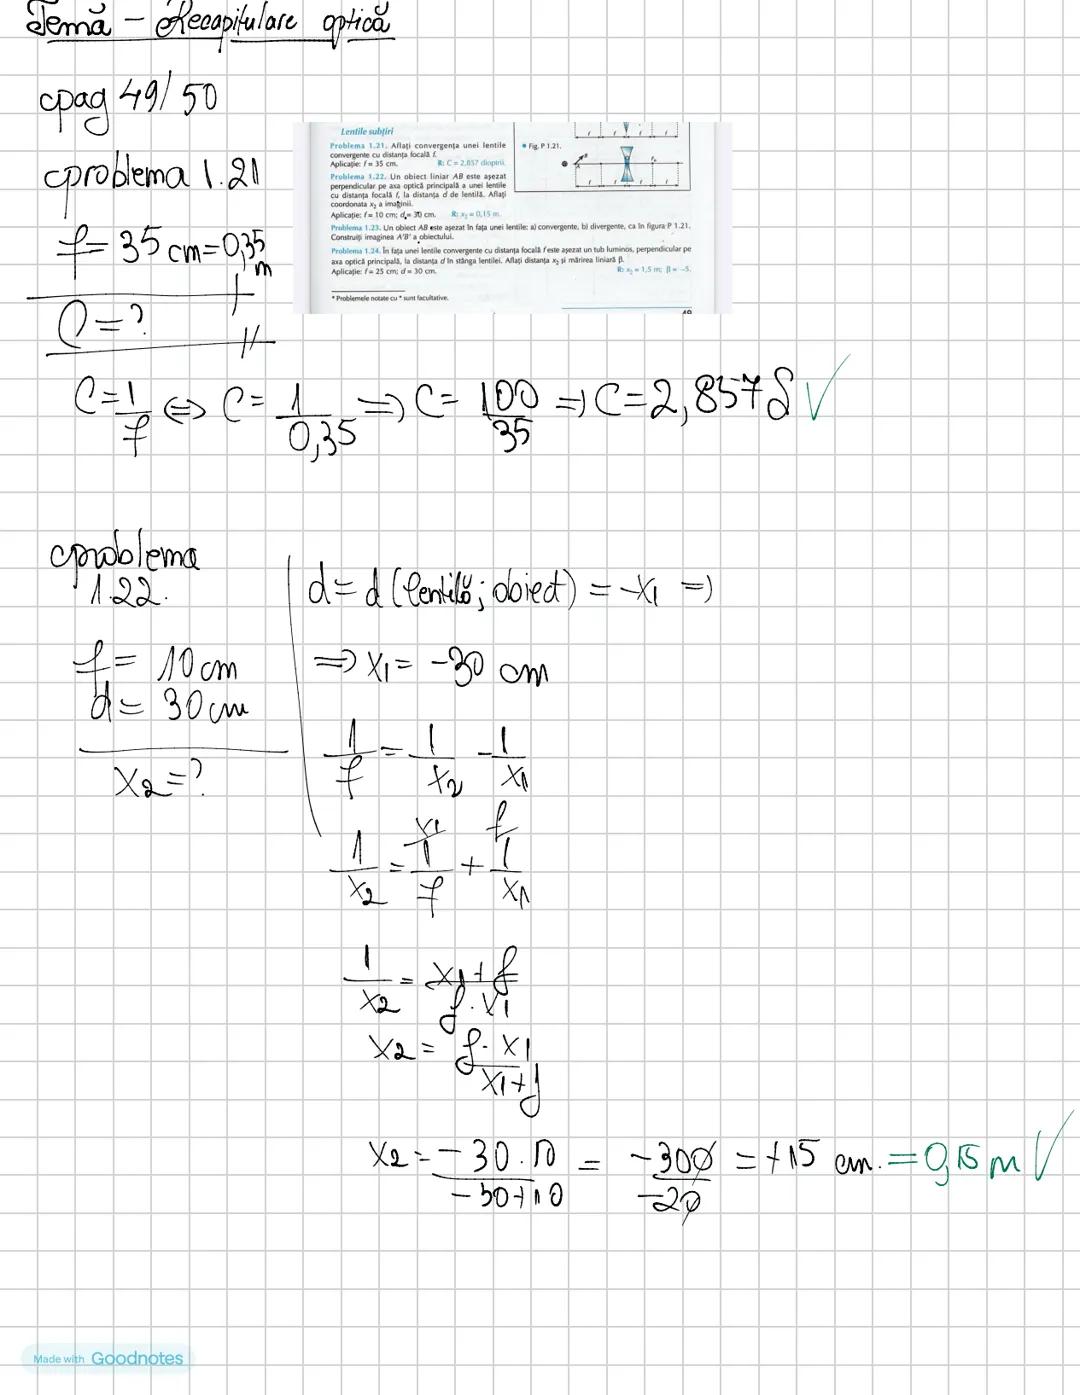 Temă - Recapitulare optică
pag 49/50
problema 1.21
f = 35 cm = 0,35 m
C = ?
C = 1/f ⇔ C = 1/0,35 ⇒ C = 100/35 ⇒ C = 2,857 δ ✓
Lentile subțiri
Problema 1.21. Aflați convergența unei lentile
convergente cu distanța focală f.
Aplicație: f = 35 cm. R: C = 2,857 dioptrii.
• Fig. P 1.21.
Problema 1.22. Un obiect liniar AB este așezat
perpendicular pe axa optică principală a unei lentile
cu distanța focală f, la distanța d de lentilă. Aflați
coordonata x₂ a imaginii.
Aplicație: f = 10 cm; d = 30 cm. R: x₂ = 0,15 m.
Problema 1.23. Un obiect AB este așezat în fața unei lentile: a) convergente, b) divergente, ca în figura P 1.21.
Construiți imaginea A'B' a obiectului.
Problema 1.24. În fața unei lentile convergente cu distanța focală f este așezat un tub luminos, perpendicular pe
axa optică principală, la distanța d în stânga lentilei. Aflați distanța x₂ și mărirea liniară β.
Aplicație: f = 25 cm; d = 30 cm. R: x₂ = 1,5 m; β = -5.
* Problemele notate cu * sunt facultative.
49
problema
1.22.
f = 10 cm
d = 30 cm
x₂ = ?
d = d (lentilă; obiect) = -x₁ ⇒
⇒ x₁ = -30 cm
1/f = 1/x₂ - 1/x₁
1/x₂ = x₁ 1/f + f 1/x₁
1/x₂ = x₁ + f / f · x₁
x₂ = f · x₁ / x₁ + f
x₂ = -30 · 10 / -30 + 10 = -300 / -20 = +15 cm. = 0,15 m ✓
Made with Goodnotes